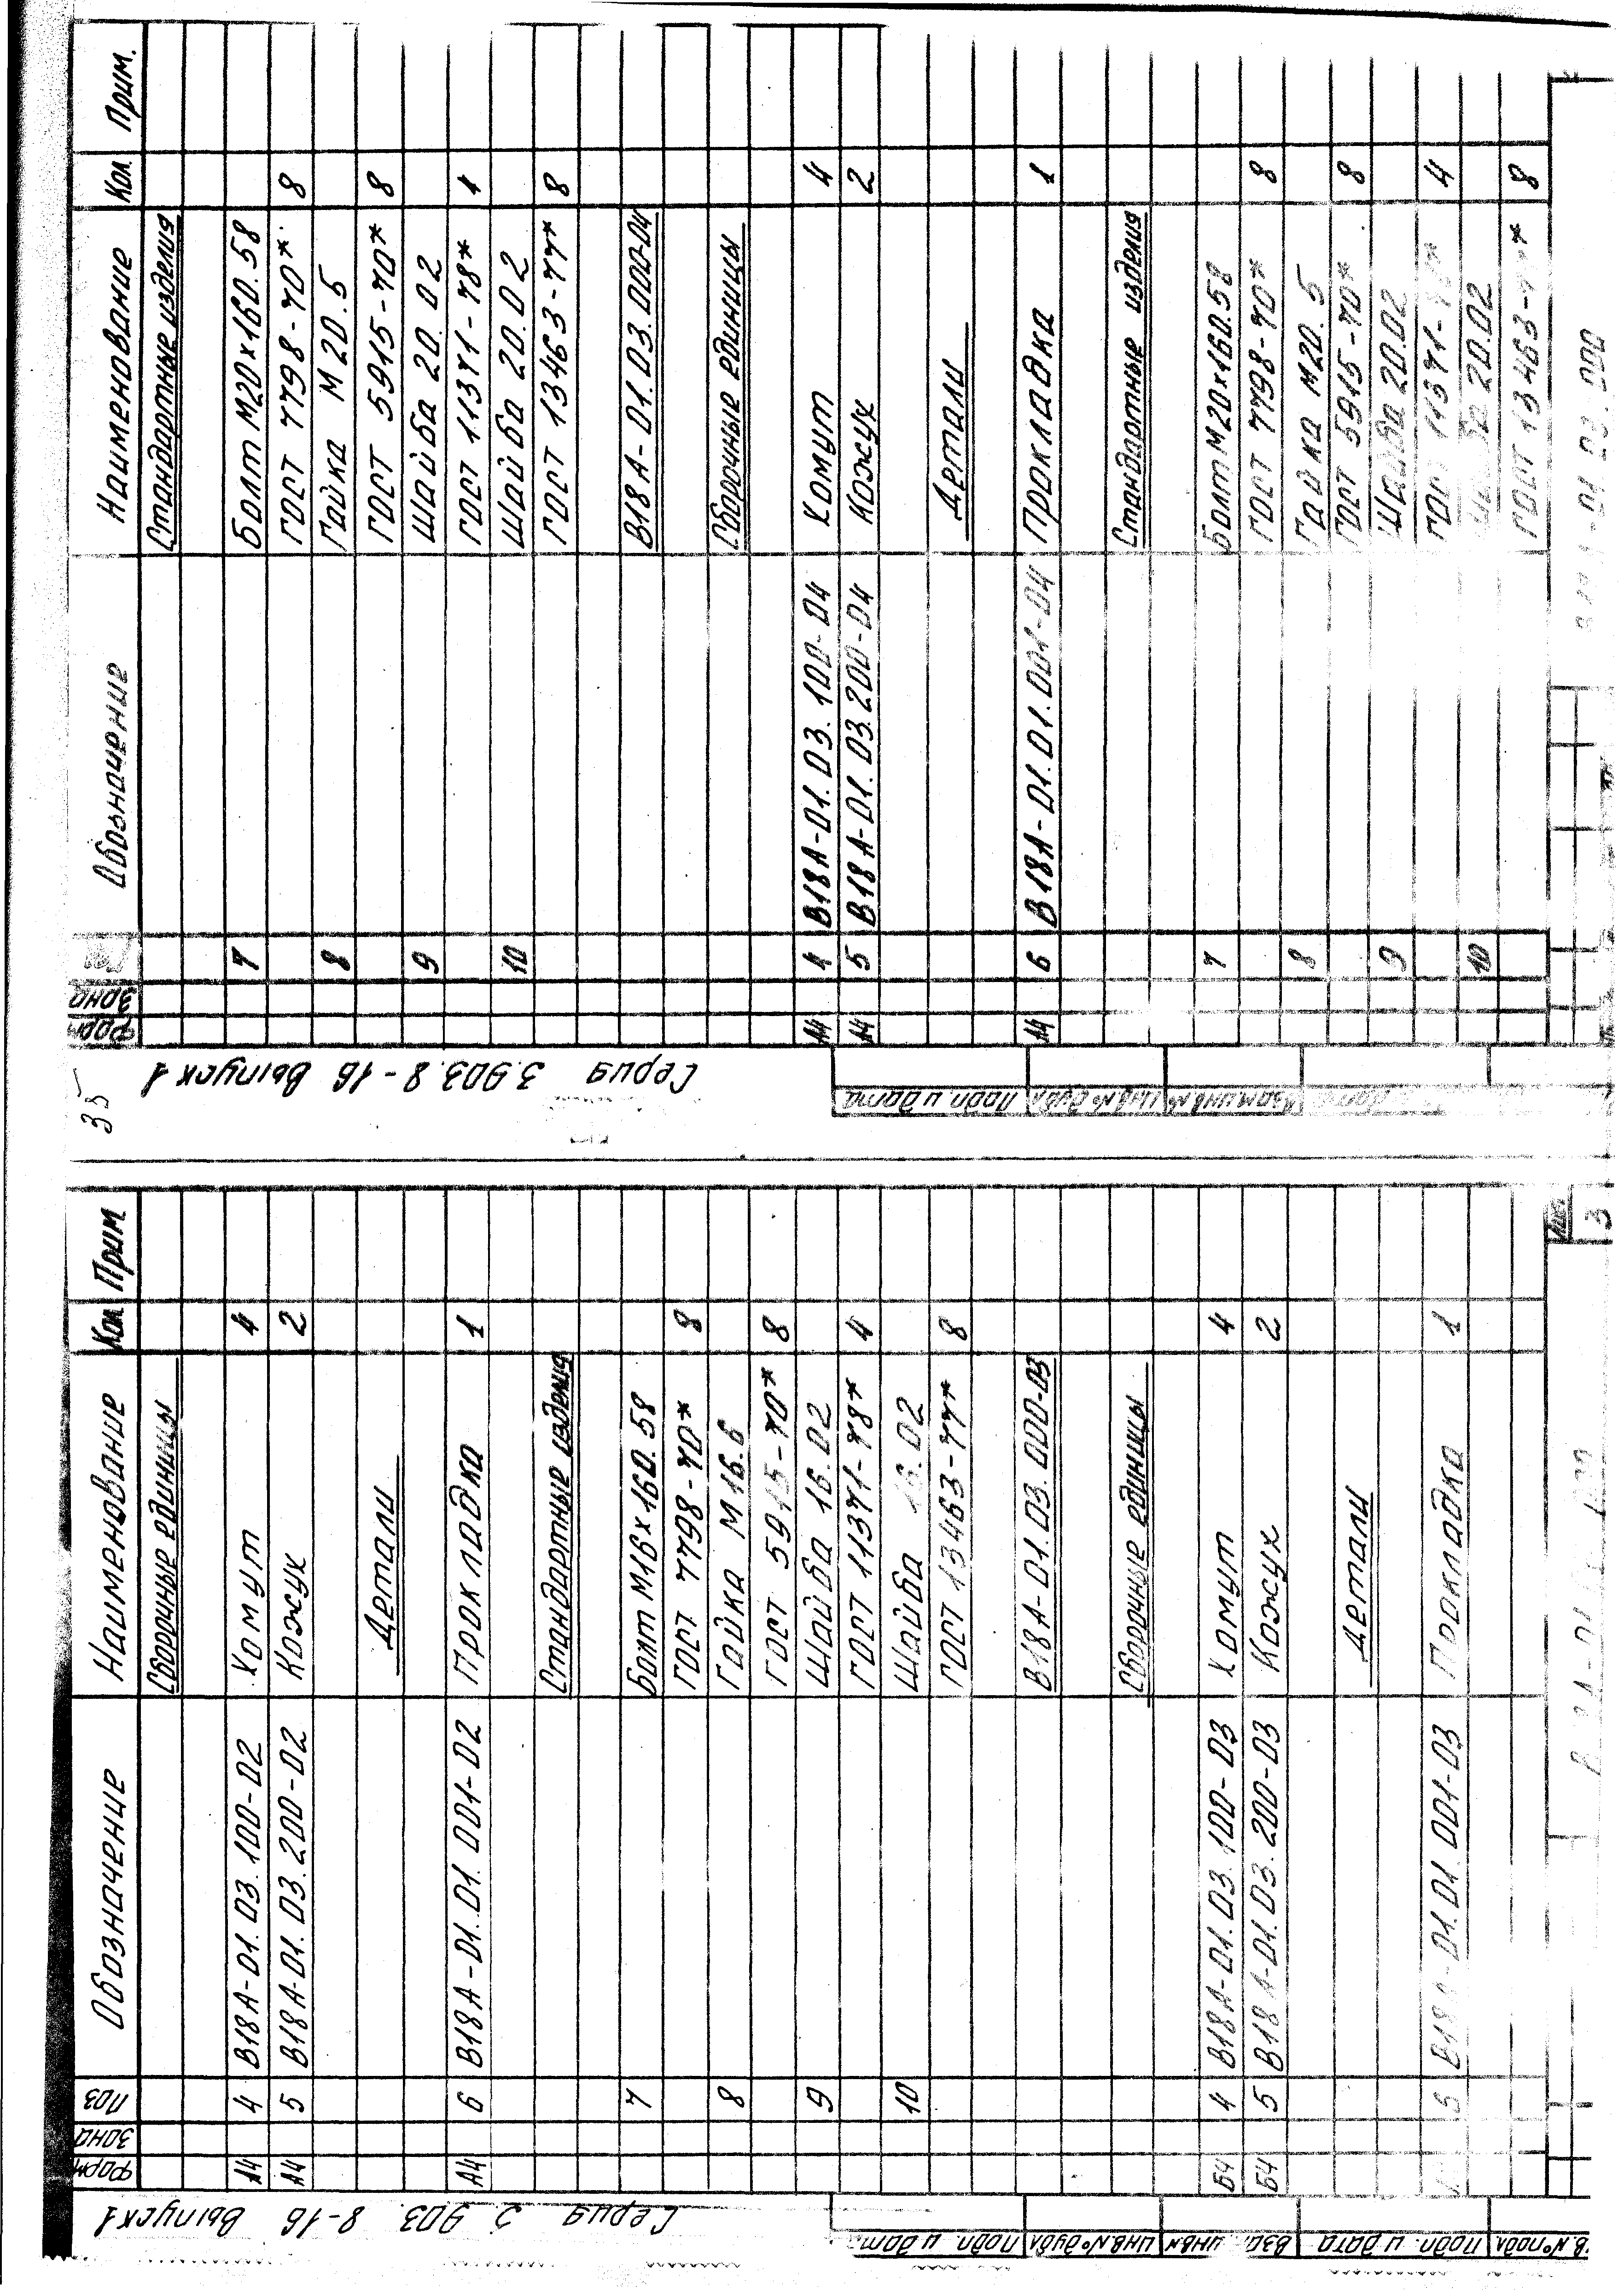 35
Серия 3.903.8-16 Выпуск 1
Форм Зона Обозначение Наименование Кол. Прим.
Стандартные изделия
7 Болт М20×160.58
ГОСТ 7798-70* 8
8 Гайка М20.5
ГОСТ 5915-70* 8
9 Шайба 20.02
ГОСТ 11371-78* 4
10 Шайба 20.02
ГОСТ 13463-77* 8
В18А-01.03.000-04
Сборочные единицы
А4 4 В18А-01.03.100-04 Хомут 4
А4 5 В18А-01.03.200-04 Кожух 2
Детали
А4 6 В18А-01.01.001-04 Прокладка 1
Стандартные изделия
7 Болт М20×160.58
ГОСТ 7798-70* 8
8 Гайка М20.5
ГОСТ 5915-70* 8
9 Шайба 20.02
ГОСТ 11371- 4
10 20.02
ГОСТ 13463- 8
01.03.000
Подп. и дата Инв № дубл Взам инв №
Серия 3.903.8-16 Выпуск 1
Форм Зона Поз Обозначение Наименование Кол Прим
Сборочные единицы
А4 4 В18А-01.03.100-02 Хомут 4
А4 5 В18А-01.03.200-02 Кожух 2
Детали
А4 6 В18А-01.01.001-02 Прокладка 1
Стандартные изделия
7 Болт М16×160.58
ГОСТ 7798-70* 8
8 Гайка М16.6
ГОСТ 5915-70* 8
9 Шайба 16.02
ГОСТ 11371-78* 4
10 Шайба 16.02
ГОСТ 13463-77* 8
В18А-01.03.000-03
Сборочные единицы
БЧ 4 В18А-01.03.100-03 Хомут 4
БЧ 5 В18А-01.03.200-03 Кожух 2
Детали
В18А-01.01.001-03 Прокладка 1
Лист
3
Подп. и дат. Инв № дубл Взам инв № Подп. и дата № подл